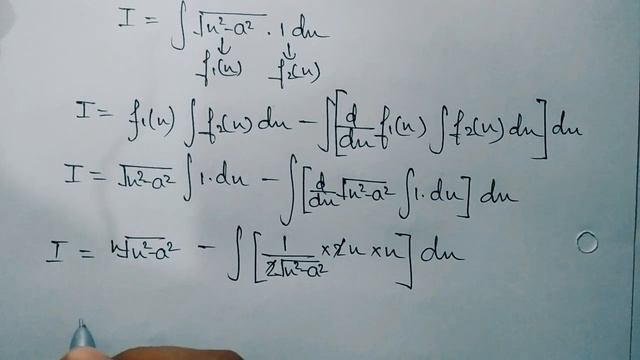 I = ∫ √u²-a² . 1 du
↓ ↓
f₁(u) f₂(u)
I = f₁(u) ∫ f₂(u) du - ∫ [d/du f₁(u) ∫ f₂(u) du] du
I = √u²-a² ∫ 1. du - ∫ [d/du √u²-a² ∫ 1. du] du
I = u√u²-a² - ∫ [1/2√u²-a² × 2u × u] du